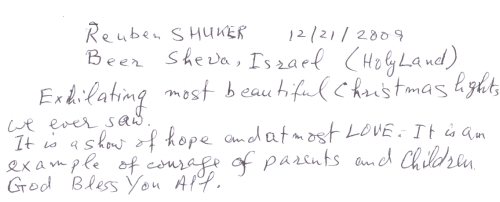 Reuben SHUKER 12/21/2009
Beer Sheva, Israel (HolyLand)
Exhilating most beautiful Christmas lights
we ever saw.
It is a show of hope and atmost LOVE. It is an
example of courage of parents and Children.
God Bless You All.